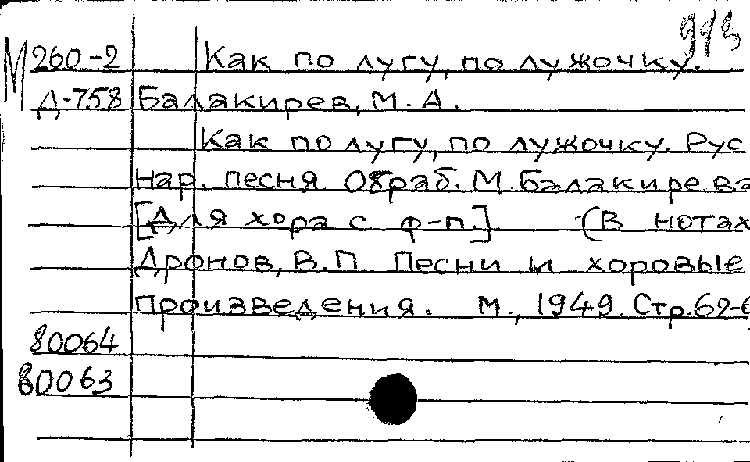 913
М 260-2 Как по лугу, по лужочку.
Д-758 Балакирев, М. А.
Как по лугу, по лужочку. Рус
нар. песня Обраб. М. Балакирева
[Для хора с ф-п.] (В нотах
Дронов, В. П. Песни и хоровые
произведения. М., 1949. Стр. 62-6
80064
80063